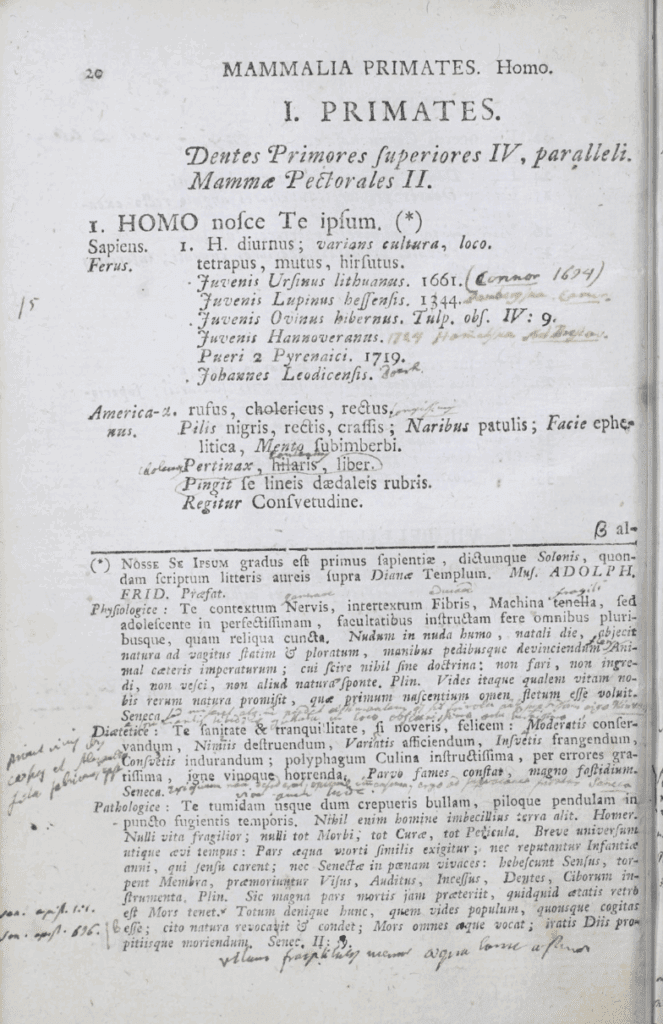 20 MAMMALIA PRIMATES. Homo.
I. PRIMATES.
Dentes Primores ſuperiores IV, paralleli.
Mammæ Pectorales II.
1. HOMO noſce Te ipſum. (*)
Sapiens. 1. H. diurnus; varians cultura, loco.
Ferus. tetrapus, mutus, hirſutus.
15
Juvenis Urſinus lithuanus. 1661. (Connor 1694)
Juvenis Lupinus heſſenſis. 1344.
Juvenis Ovinus hibernus. Tulp. obſ. IV: 9.
Juvenis Hannoveranus. 1724
Pueri 2 Pyrenaici. 1719.
Johannes Leodicenſis.
America- 2. rufus, cholericus, rectus.
nus. Pilis nigris, rectis, craſſis; Naribus patulis; Facie ephe-
litica, Mento ſubimberbi.
Pertinax, hilaris, liber.
Pingit ſe lineis dædaleis rubris.
Regitur Conſvetudine.
β al-
(*) NOSSE SE IPSUM gradus eſt primus ſapientiæ, dictumque Solonis, quon-
dam ſcriptum litteris aureis ſupra Dianæ Templum. Muſ. ADOLPH.
FRID. Præfat.
Phyſiologice: Te contextum Nervis, intertextum Fibris, Machina tenella, ſed
adoleſcente in perfectiſſimam, facultatibus inſtructam fere omnibus pluri-
busque, quam reliqua cuncta. Nudum in nuda humo, natali die, abjecit
natura ad vagitus ſtatim & ploratum, manibus pedibusque devinciendum Ani-
mal cæteris imperaturum; cui ſcire nihil ſine doctrina: non fari, non ingre-
di, non veſci, non aliud naturæ ſponte. Plin. Vides itaque qualem vitam no-
bis rerum natura promiſit, quæ primum naſcentium omen fletum eſſe voluit.
Seneca.
Diætetice: Te ſanitate & tranquilitate, ſi noveris, felicem: Moderatis conſer-
vandum, Nimiis deſtruendum, Variatis afficiendum, Inſvetis frangendum,
Conſvetis indurandum; polyphagum Culina inſtructiſſima, per errores gra-
tiſſima, igne vinoque horrenda. Parvo fames conſtat, magno faſtidium.
Seneca.
Pathologice: Te tumidam usque dum crepueris bullam, piloque pendulam in
puncto fugientis temporis. Nihil enim homine imbecillius terra alit. Homer.
Nulli vita fragilior; nulli tot Morbi, tot Curæ, tot Pericula. Breve univerſum
utique ævi tempus: Pars æqua morti ſimilis exigitur; nec reputantur Infantiæ
anni, qui ſenſu carent; nec Senectæ in pœnam vivaces: hebeſcunt Senſus, tor-
pent Membra, præmoriuntur Viſus, Auditus, Inceſſus, Dentes, Ciborum in-
ſtrumenta. Plin. Sic magna pars mortis jam præteriit, quidquid ætatis retro
eſt Mors tenet. Totum denique hunc, quem vides populum, quousque cogitas
eſſe; cito natura revocavit & condet; Mors omnes æque vocat; iratis Diis pro-
pitiisque moriendum. Senec. II: 9.